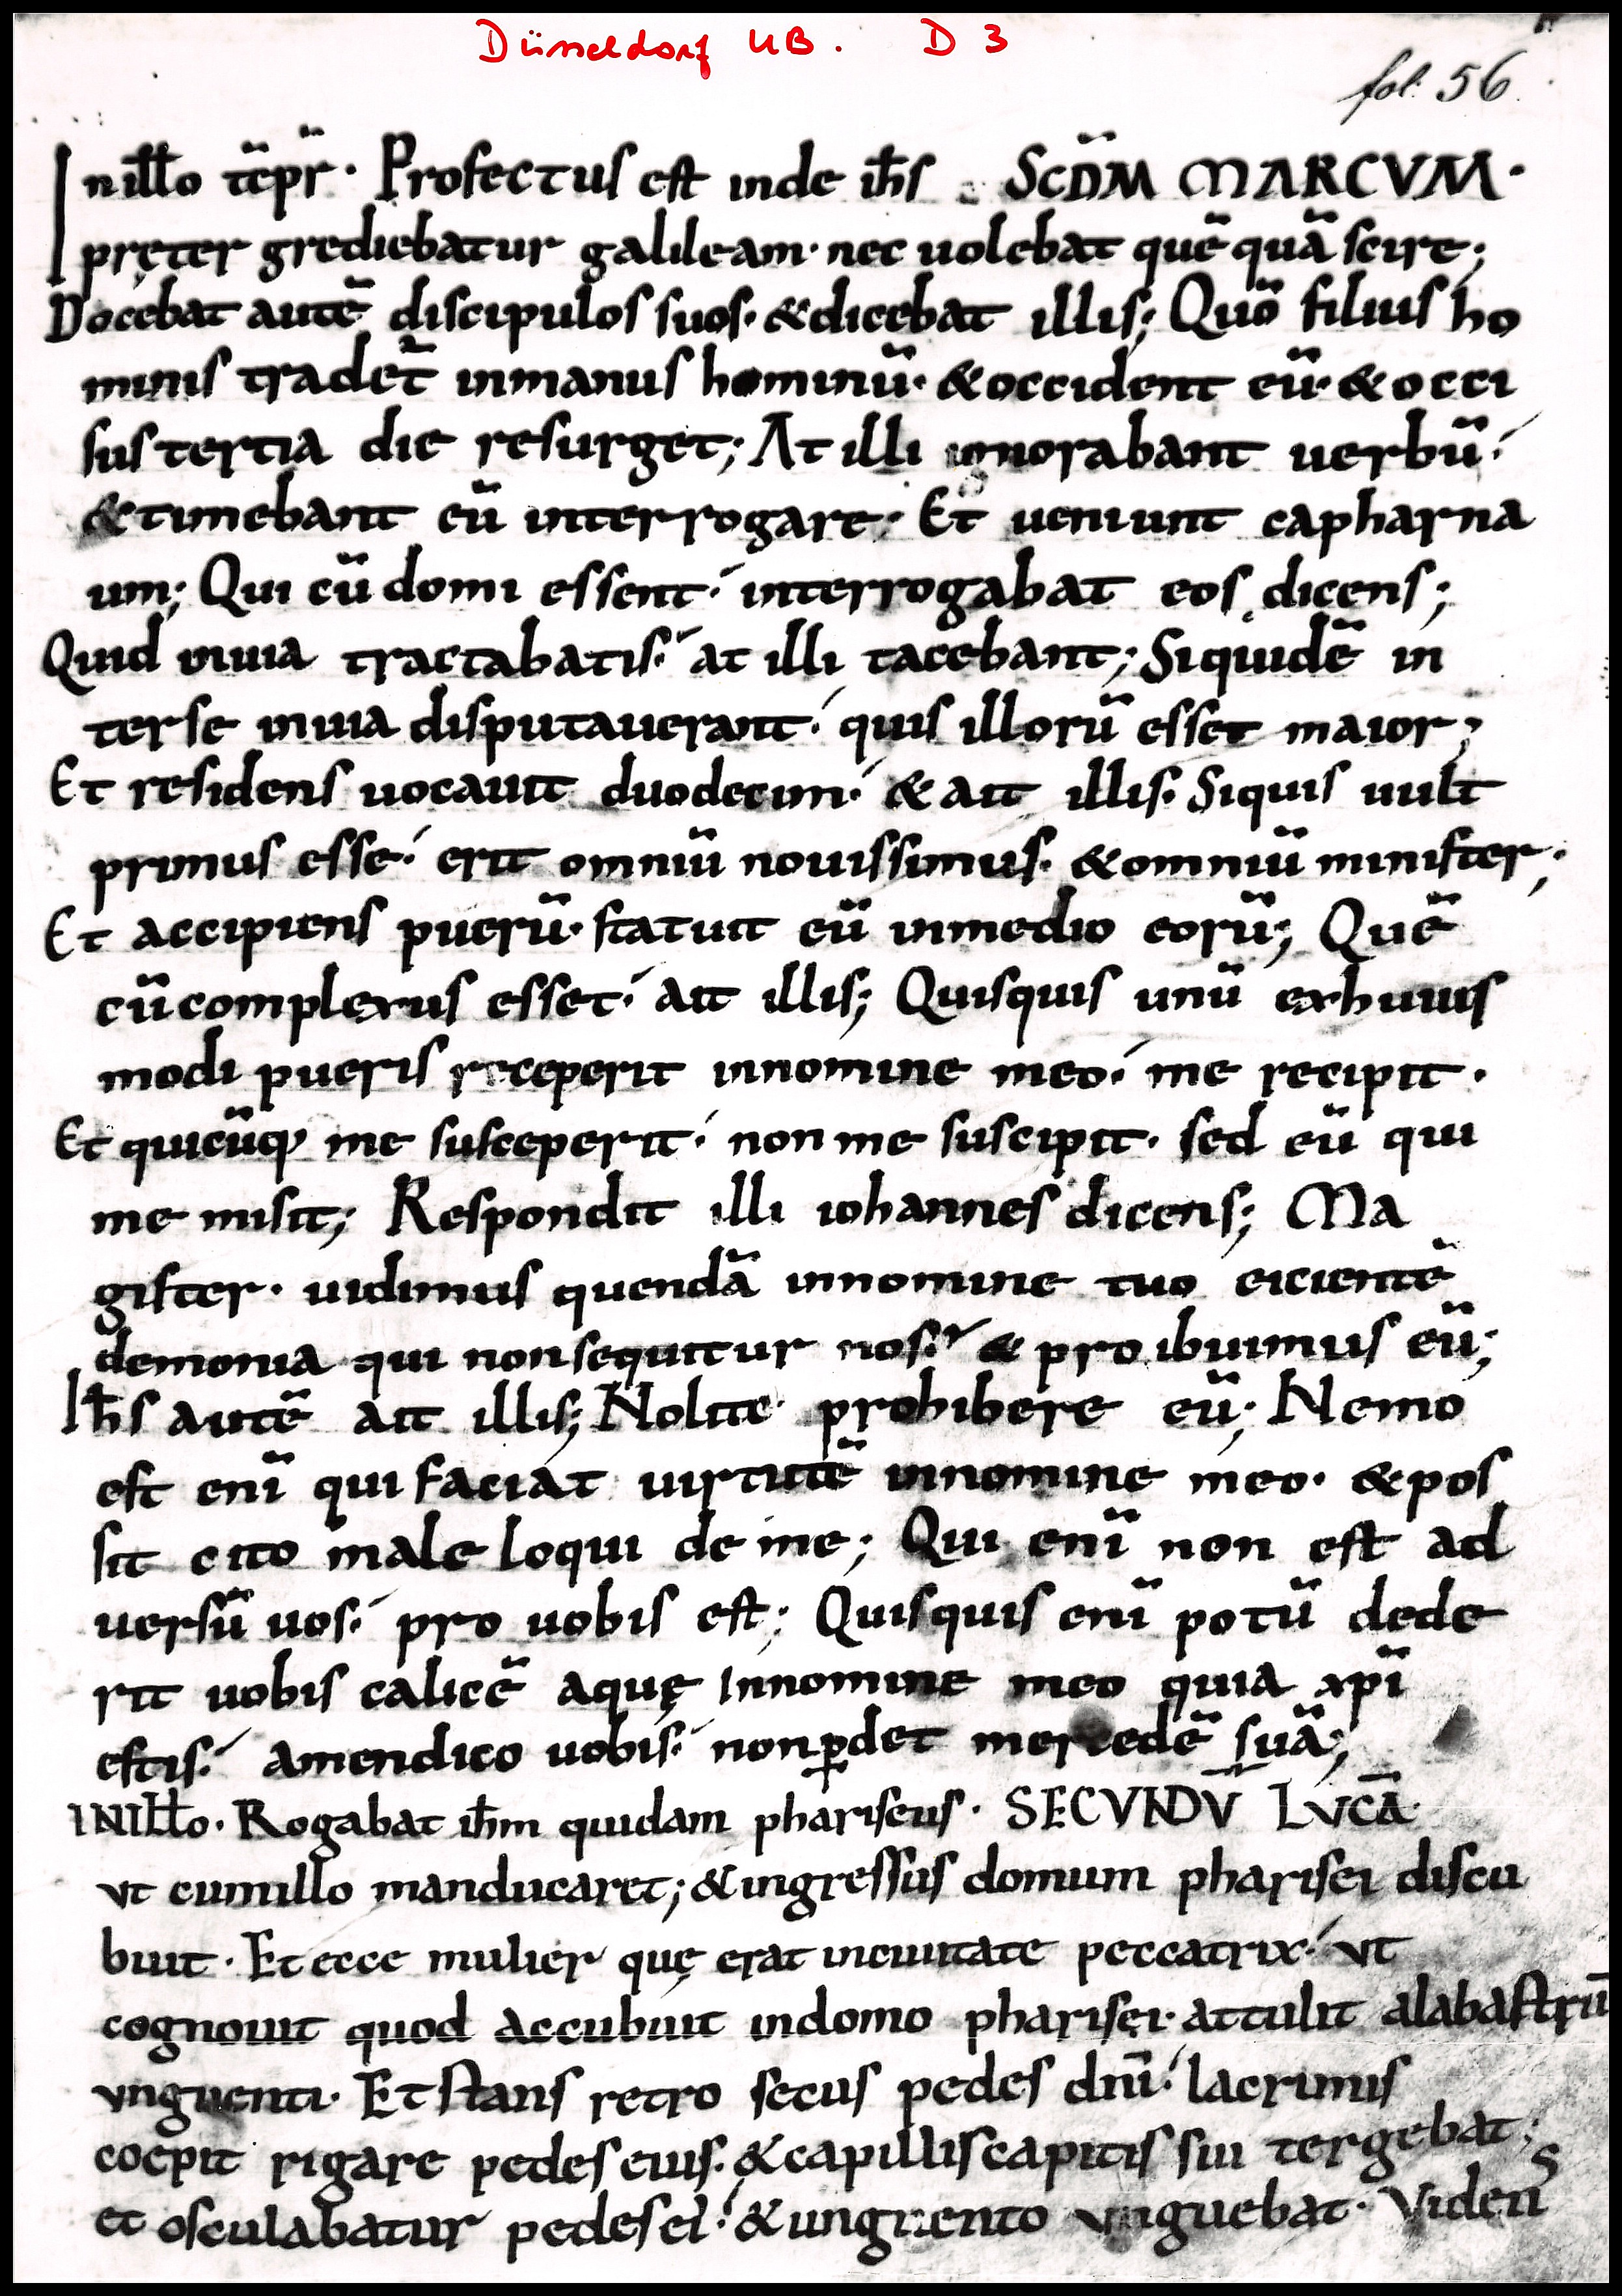 Düsseldorf UB. D 3
fol. 56.
Inill̅o te̅pr̅· Profectus est inde ih̅s SCD̅M MARCVM·
pręter grediebatur galileam· nec uolebat que̅ qua̅ scire;
Docebat aute̅ discipulos suos· &dicebat illis; Quo̅ filius ho
minis tradet̅ inmanus hominu̅· &occident eu̅· &occi
sus tertia die resurget; At illi ignorabant uerbu̅·
&timebant eu̅ interrogare· Et ueniunt capharna
um; Qui cu̅ domi essent· interrogabat eos dicens;
Quid inuia tractabatis· at illi tacebant; Siquide̅ in
ter se inuia disputauerant· quis illoru̅ esset maior;
Et residens uocauit duodecim· & ait illis· Siquis uult
primus esse· erit omniu̅ nouissimus· &omniu̅ minister;
Et accipiens pueru̅· statuit eu̅ inmedio eoru̅; Que̅
cu̅ complexus esset· ait illis; Quisquis unu̅ exhuius
modi pueris receperit innomine meo· me recipit·
Et quicu̅q; me susceperit· non me suscipit· sed eu̅ qui
me misit; Respondit illi iohannes dicens; Ma
gister· uidimus quenda̅ innomine tuo eiciente̅
demonia qui nonsequitur nos· & proibuimus eu̅;
Ih̅s aute̅ ait illis; Nolite prohibere eu̅; Nemo
est eni̅ qui faciat uirtute̅ innomine meo· &pos
sit cito male loqui de me; Qui eni̅ non est ad
uersu̅ uos· pro uobis est; Quisquis eni̅ potu̅ dede
rit uobis calice̅ aquę Innomine meo quia xpi̅
estis· amendico uobis· nonꝑdet mercede̅ sua̅;
INILl̅o· Rogabat ih̅m quidam phariseus· SECVNDV̅ LVCA̅·
vt cumillo manducaret; &ingressus domum pharisei discu
buit· Et ecce mulier quę erat inciuitate peccatrix· vt
cognouit quod accubuit indomo pharisei· attulit alabastru̅
vnguenti· Et stans retro secus pedes dni̅· lacrimis
coepit rigare pedes eius· &capillis capitis sui tergebat;
et osculabatur pedes ei· &unguento vnguebat· Videns